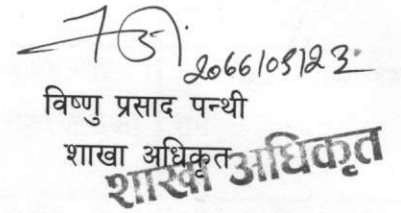 2066/05/23
विष्णु प्रसाद पन्थी
शाखा अधिकृत
शाखा अधिकृत